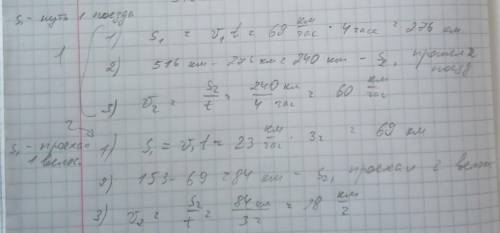 S₁ - путь 1 поезда
1
1) S₁ = v₁ t = 69 км/час · 4 часа = 276 км
2) 516 км - 276 км = 240 км - S₂, прошел 2 поезд
3) v₂ = S₂/t = 240 км/4 час = 60 км/час
2
S₁ - проехал 1 велос.
1) S₁ = v₁ t = 23 км/час · 3ч = 69 км
2) 153 - 69 = 84 км - S₂, проехал 2 велос
3) v₂ = S₂/t = 84 км/3 ч = 18 км/ч